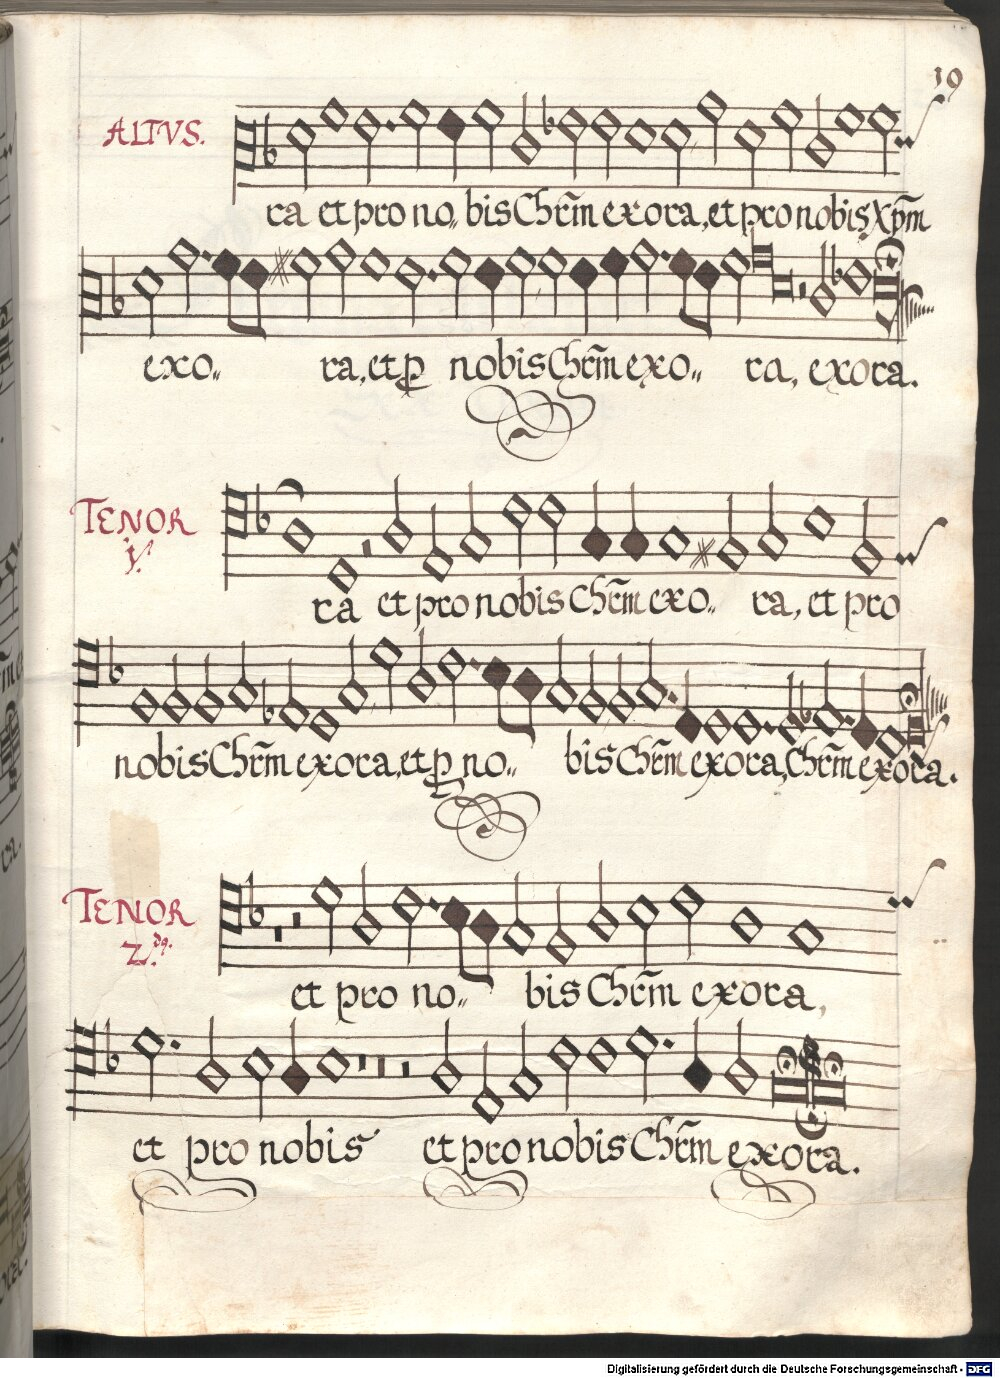 19
ALTVS.
ra et pro no„ bis Chr̃m exora, et pro nobis Xp̃m
exo„ ra, et ꝓ nobis Chr̃m exo„ ra, exora.
TENOR
ra et pro nobis Chr̃m exo„ ra, et pro
nobis Chr̃m exora, et ꝓ no„ bis Chr̃m exora, Chr̃m exora.
TENOR
et pro no„ bis Chr̃m exora,
et pro nobis et pro nobis Chr̃m exora.
Digitalisierung gefördert durch die Deutsche Forschungsgemeinschaft - DFG